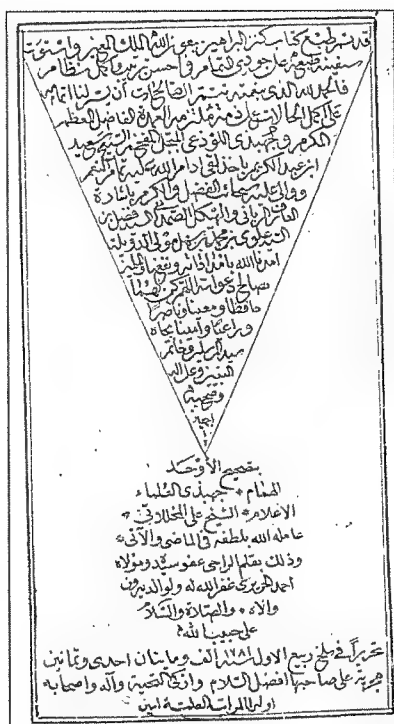 قد تم طبع كتاب كنز البراهين بعون الله الملك المعين واستوت
سفينة طبعه على جودي التمام في احسن ترتيب واكمل نظام
فالحمد لله الذي بنعمته تتم الصالحات أن يسر لنا اتمامه
على اكمل الحالات على ذمة ملتزمه العمدة الفاضل المعظم
المكرم والجهبذي اللوذعي المبجل المفخم الشيخ سعيد
ابن عبد الكريم باحذلقي ادام الله عليه تمام النعم
ووالى عليه سجال الفضل والكرم باشارة
العارف الرباني والهيكل الصمداني السيد فضل بن
السيد علوي بن محمد بن سهل مولى الدويلة
امدنا الله بامداداته ونفعنا
بصالح دعواته
حافظا ومعينا وناصرا
وراعيا وأمينا بجاه
سيد المرسلين وخاتم
النبيين وعلى آله
وصحبه
اجمعين
بتصحيح الأوحد
الهمام * جهبذى العلماء
الاعلام * الشيخ على المخللاتى *
عامله الله بلطفه فى الماضى والآتى *
وذلك بقلم الراجى عفو سيده ومولاه
احمد الحريرى غفر الله له ولوالديه ومن
والاه * والصلاة والسلام
على حبيب الله
تحريرًا فى سلخ ربيع الاول سنة ١٢٨١ الف ومايتان احدى وثمانين
هجرية على صاحبها افضل السلام وازكى التحية وآله واصحابه
اولى المراتب العلية امين